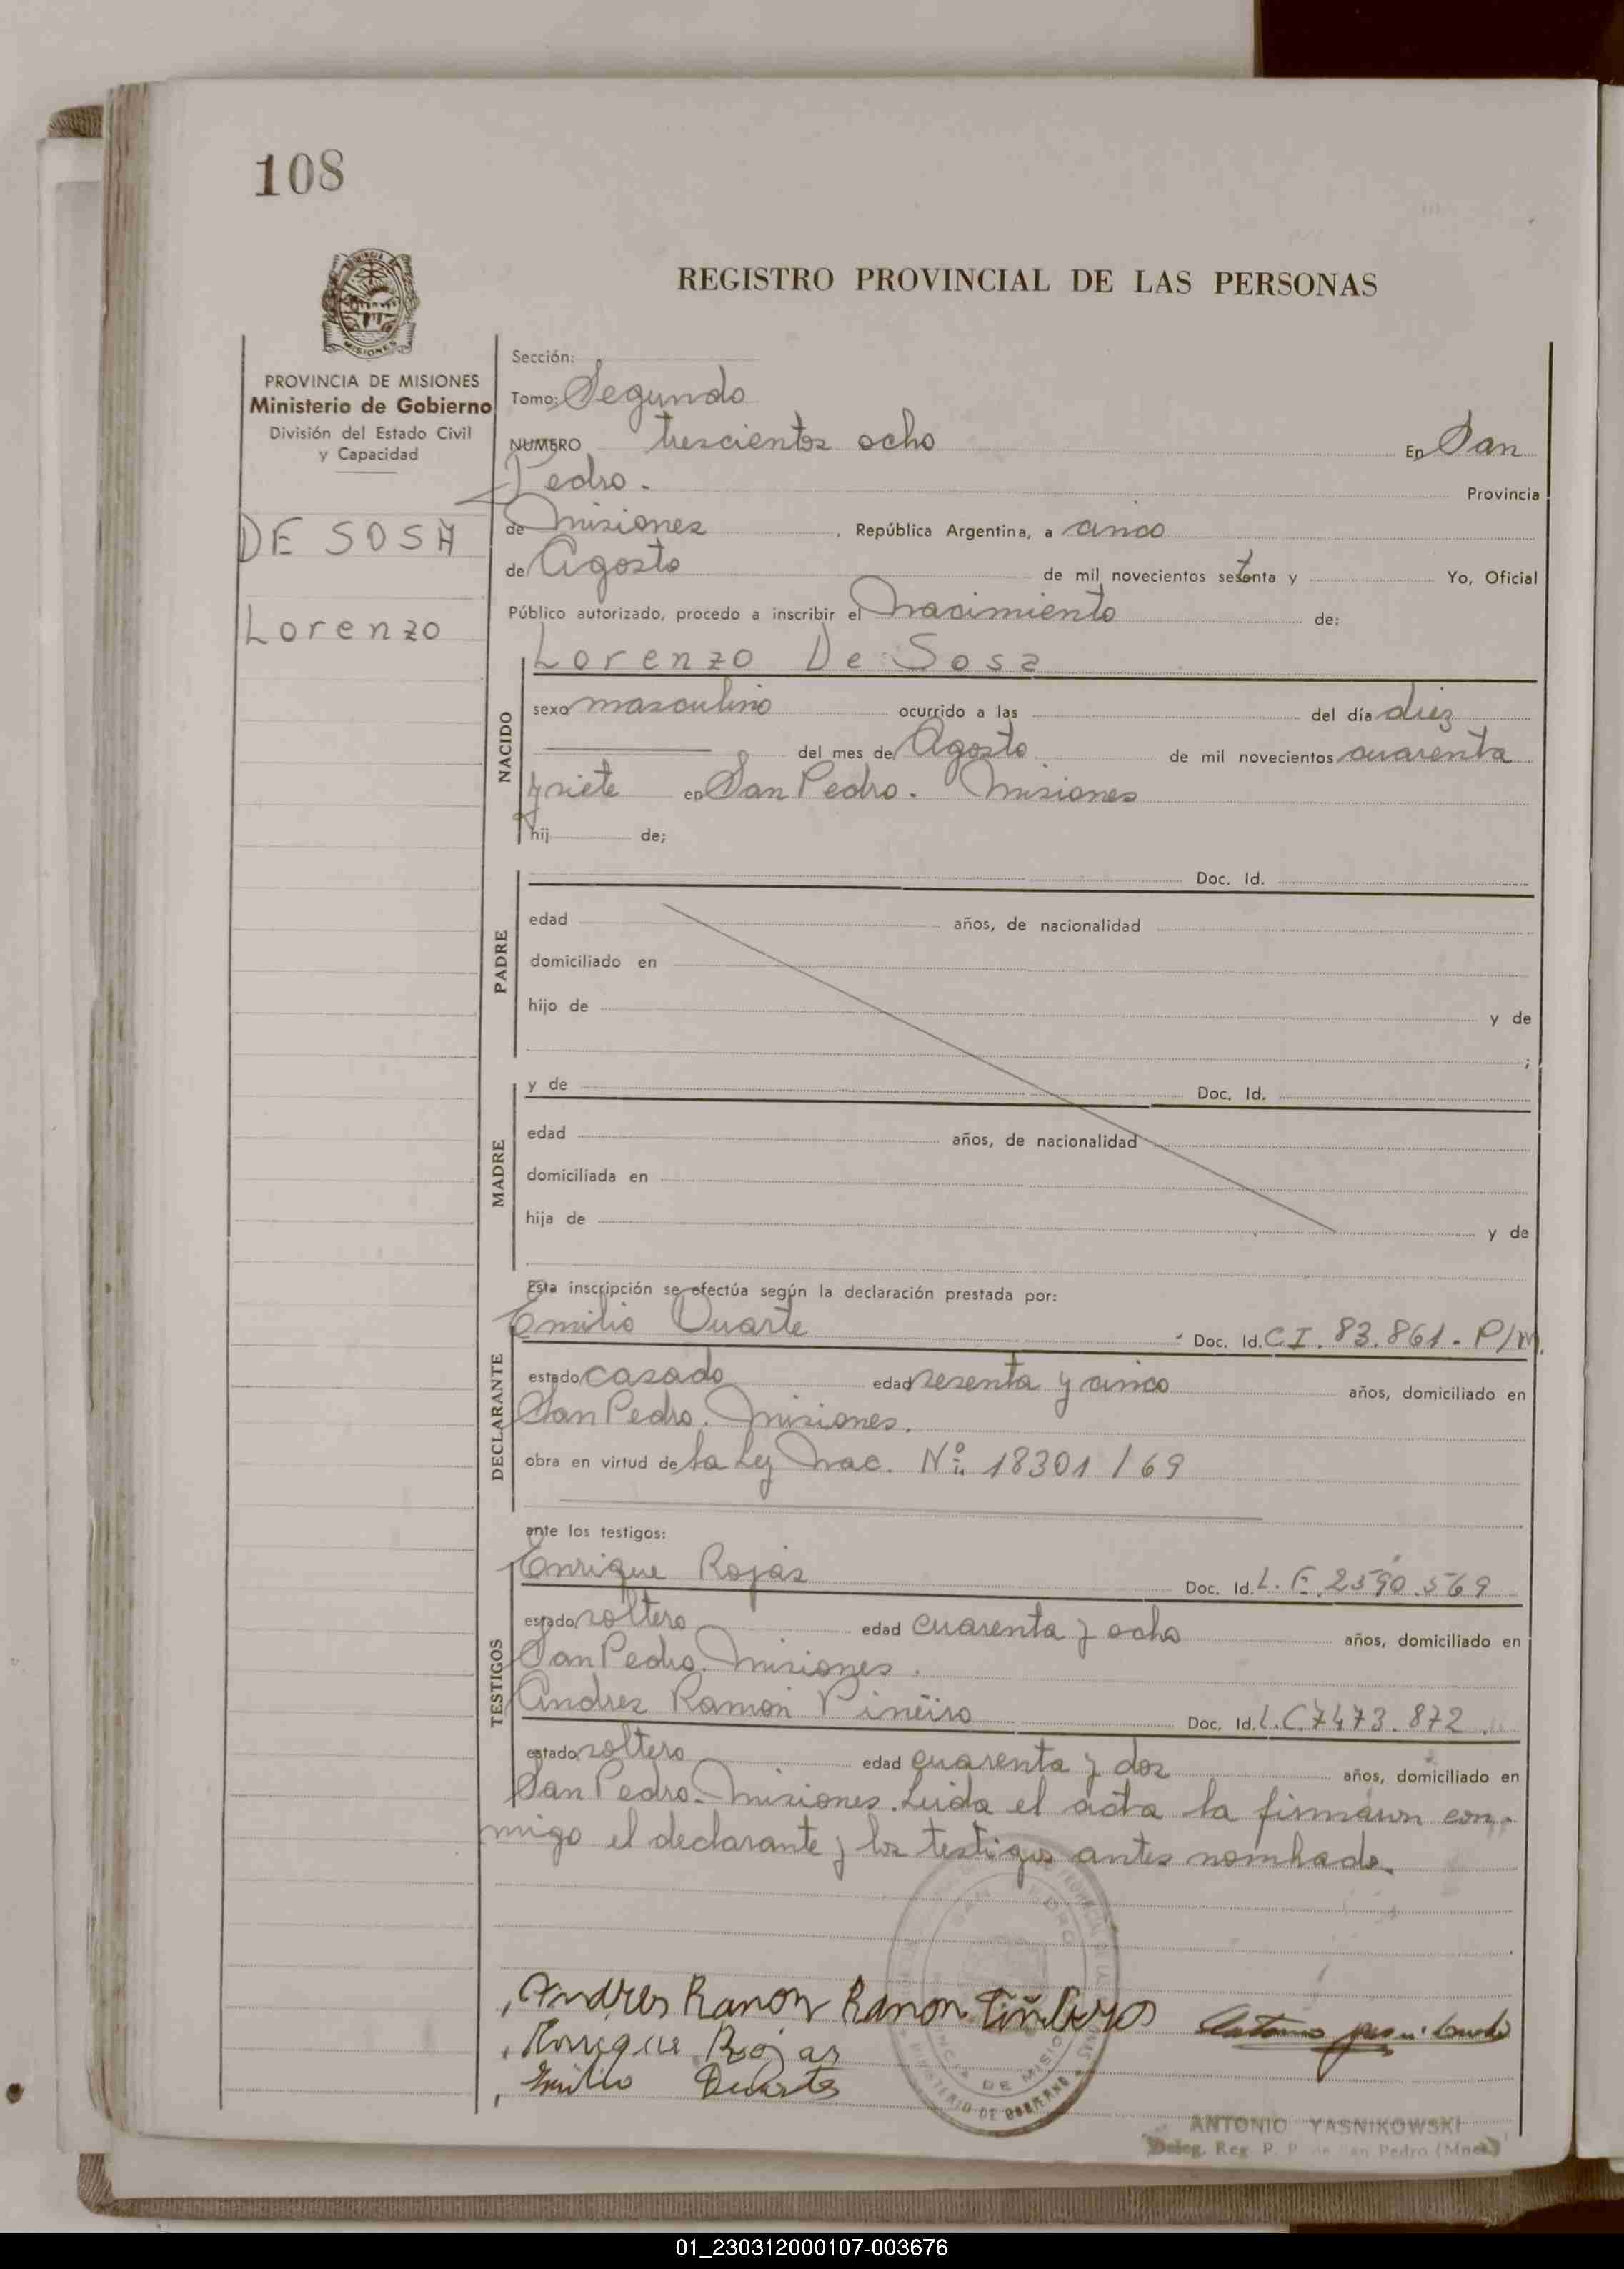 108
REGISTRO PROVINCIAL DE LAS PERSONAS
MISIONES
PROVINCIA DE MISIONES
Ministerio de Gobierno
División del Estado Civil
y Capacidad
DE SOSA
Lorenzo
Sección:
Tomo: Segundo
NUMERO trescientos ocho En San
Pedro. Provincia
de Misiones, República Argentina, a cinco
de Agosto de mil novecientos setenta y Yo, Oficial
Público autorizado, procedo a inscribir el Nacimiento de:
NACIDO
Lorenzo De Sosa
sexo masculino ocurrido a las del día diez
del mes de Agosto de mil novecientos cuarenta
y siete en San Pedro. Misiones
hij de;
PADRE
Doc. Id.
edad años, de nacionalidad
domiciliado en
hijo de y de
;
MADRE
y de Doc. Id.
edad años, de nacionalidad
domiciliada en
hija de y de
Esta inscripción se efectúa según la declaración prestada por:
DECLARANTE
Emilio Duarte Doc. Id. C I. 83.861. P/M.
estado casado edad sesenta y cinco años, domiciliado en
San Pedro. Misiones.
obra en virtud de la Ley Nac. Nº 18301 / 69
ante los testigos:
TESTIGOS
Enrique Rojas Doc. Id. L. E. 2590.569
estado soltero edad cuarenta y ocho años, domiciliado en
San Pedro. Misiones.
Andres Ramon Piñeiro Doc. Id. L.C. 7473.872.
estado soltero edad cuarenta y dos años, domiciliado en
San Pedro. Misiones. Leida el acta la firmaron con-
migo el declarante y los testigos antes nombrado.
Andres Ramon Ramon
Enrique Rojas
Emilio Duarte
PROVINCIA DE MISIONES
MINISTERIO DE GOBIERNO
ANTONIO YASNIKOWSKI
Deleg. Reg. P. P. de San Pedro (Mnes)
01_230312000107-003676